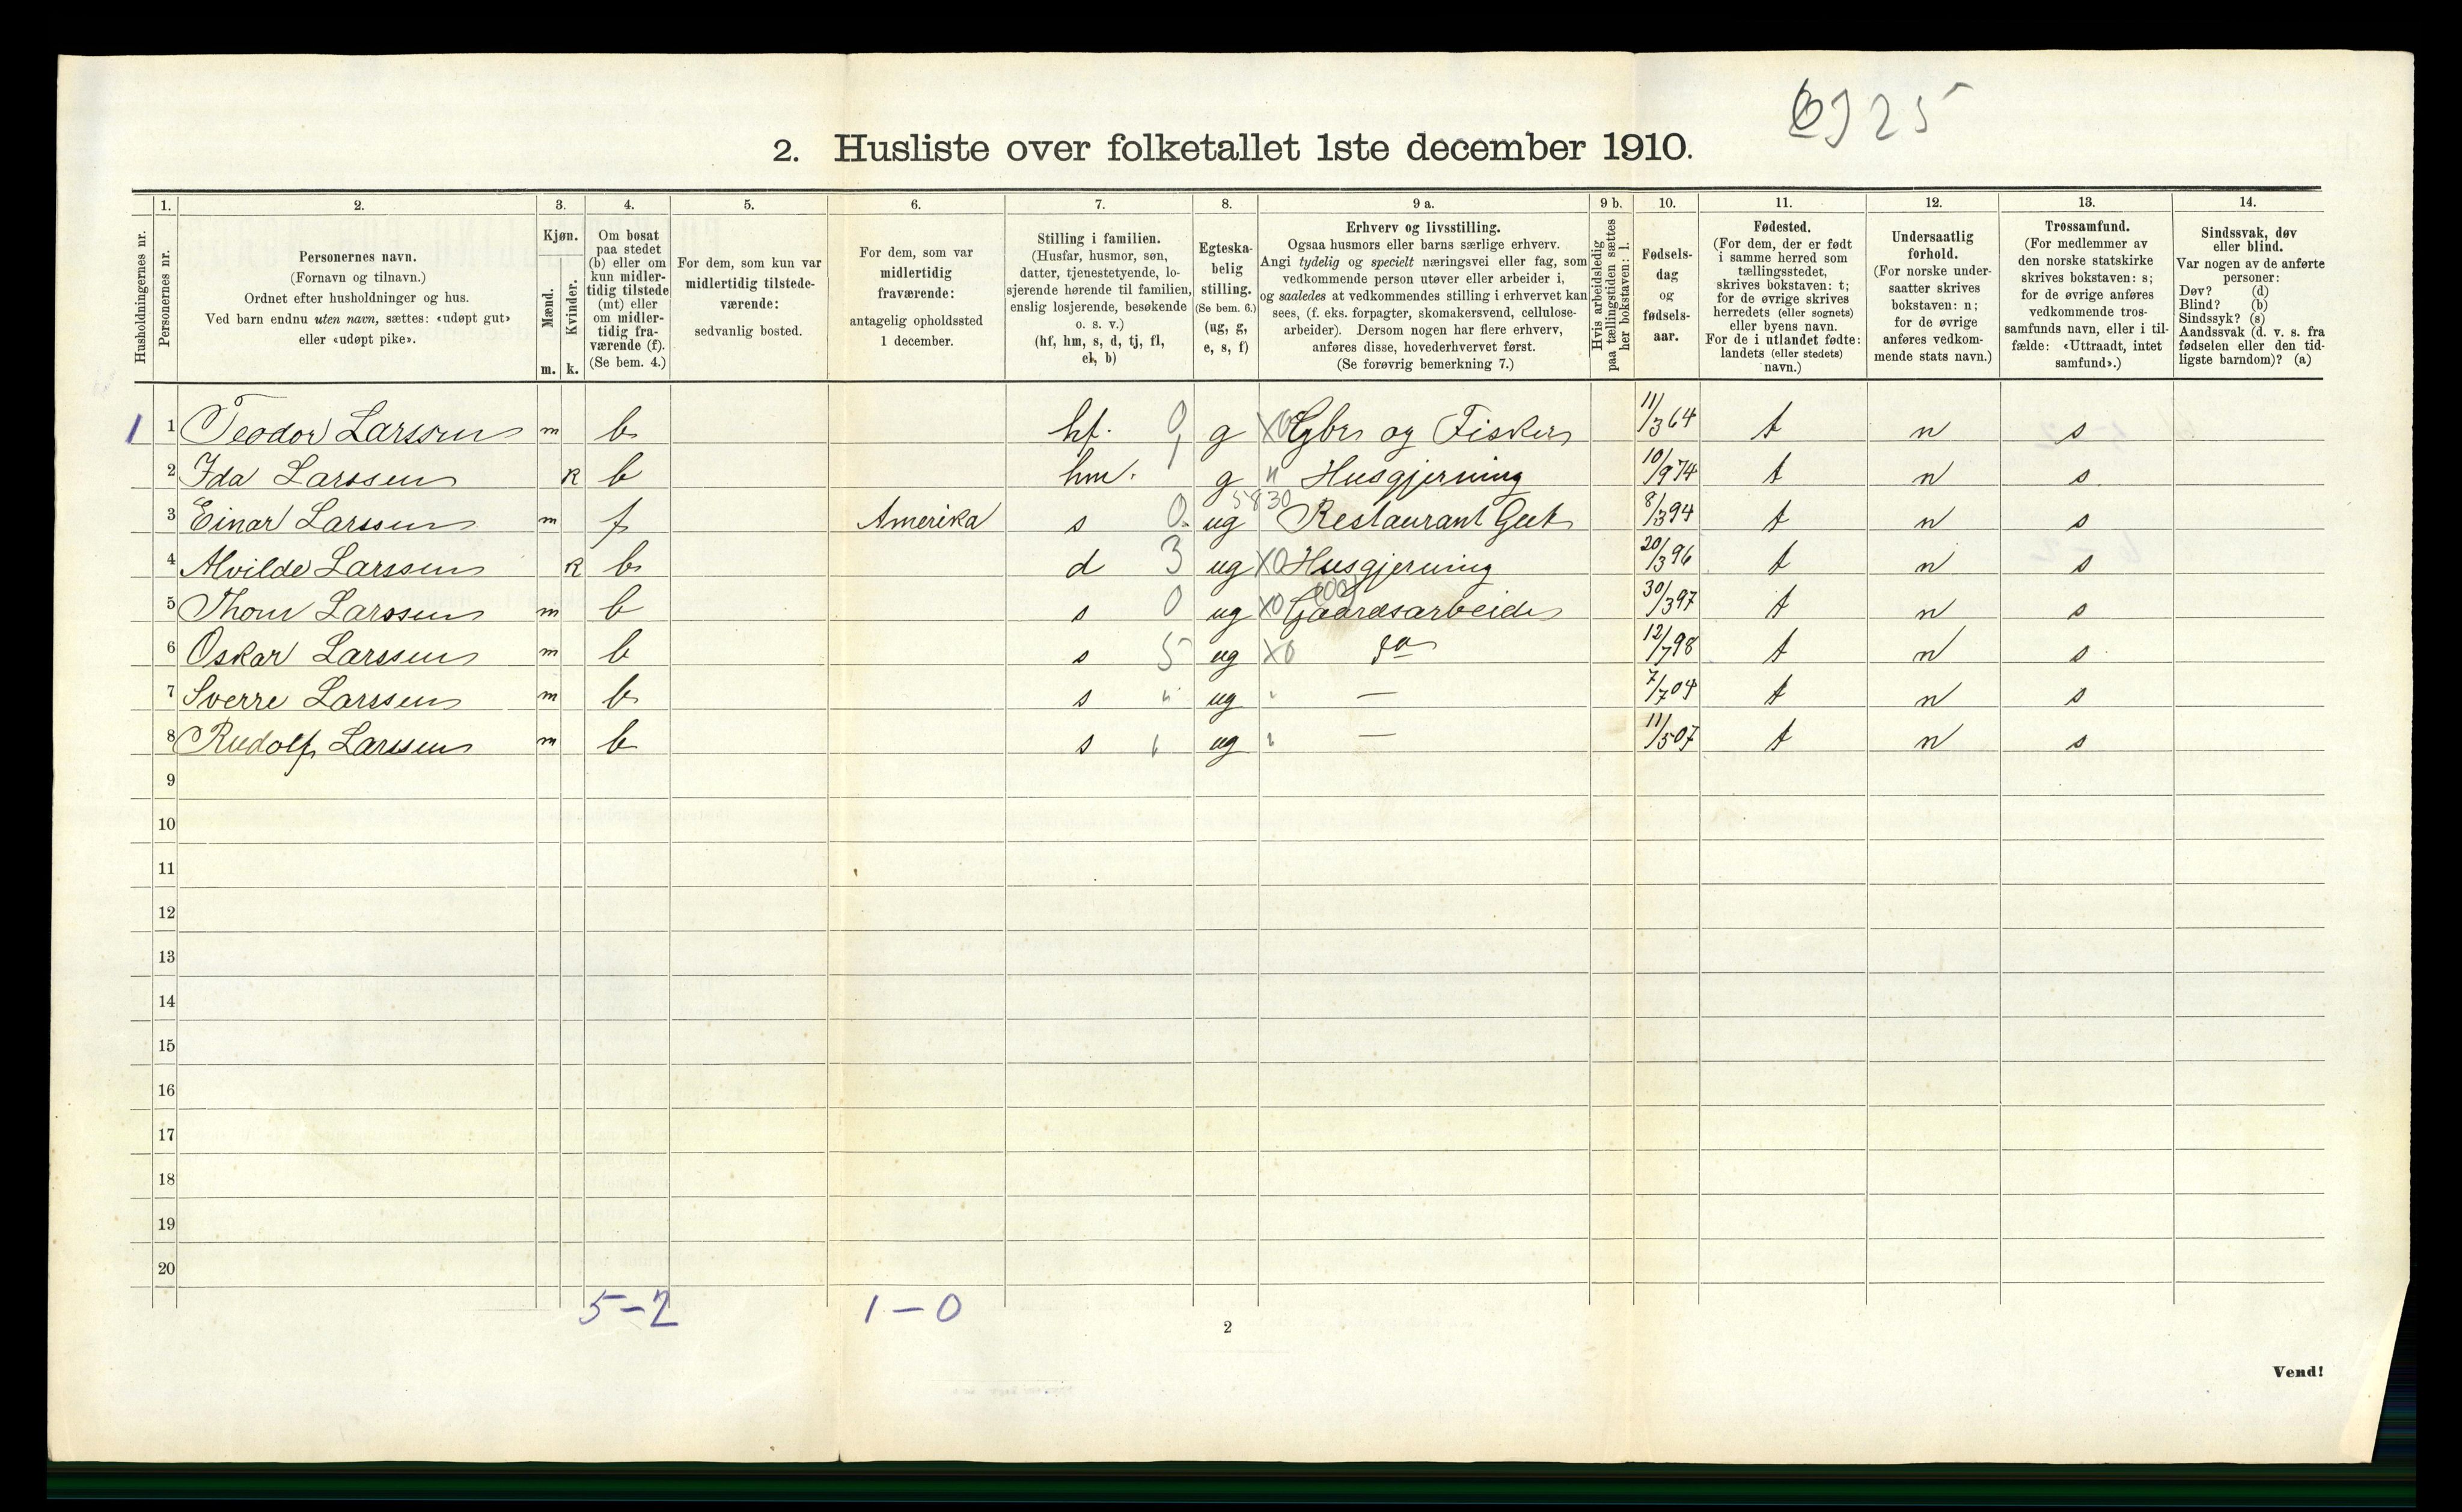 6925
2. Husliste over folketallet 1ste december 1910.
Husholdningernes nr.
1.
Personernes nr.
2.
Personernes navn.
(Fornavn og tilnavn.)
Ordnet efter husholdninger og hus.
Ved barn endnu uten navn, sættes: «udøpt gut»
eller «udøpt pike».
3.
Kjøn.
Mænd.
Kvinder.
m. k.
4.
Om bosat
paa stedet
(b) eller om
kun midler-
tidig tilstede
(mt) eller
om midler-
tidig fra-
værende (f).
(Se bem. 4.)
5.
For dem, som kun var
midlertidig tilstede-
værende:
sedvanlig bosted.
6.
For dem, som var
midlertidig
fraværende:
antagelig opholdssted
1 december.
7.
Stilling i familien.
(Husfar, husmor, søn,
datter, tjenestetyende, lo-
sjerende hørende til familien,
enslig losjerende, besøkende
o. s. v.)
(hf, hm, s, d, tj, fl,
el, b)
8.
Egteska-
belig
stilling.
(Se bem. 6.)
(ug, g,
e, s, f)
9 a.
Erhverv og livsstilling.
Ogsaa husmors eller barns særlige erhverv.
Angi tydelig og specielt næringsvei eller fag, som
vedkommende person utøver eller arbeider i,
og saaledes at vedkommendes stilling i erhvervet kan
sees, (f. eks. forpagter, skomakersvend, cellulose-
arbeider). Dersom nogen har flere erhverv,
anføres disse, hovederhvervet først.
(Se forøvrig bemerkning 7.)
9 b.
Hvis arbeidsledig
paa tællingstiden sættes
her bokstaven: l.
10.
Fødsels-
dag
og
fødsels-
aar.
11.
Fødested.
(For dem, der er født
i samme herred som
tællingsstedet,
skrives bokstaven: t;
for de øvrige skrives
herredets (eller sognets)
eller byens navn.
For de i utlandet fødte:
landets (eller stedets)
navn.)
12.
Undersaatlig
forhold.
(For norske under-
saatter skrives
bokstaven: n;
for de øvrige
anføres vedkom-
mende stats navn.)
13.
Trossamfund.
(For medlemmer av
den norske statskirke
skrives bokstaven: s;
for de øvrige anføres
vedkommende tros-
samfunds navn, eller i til-
fælde: «Uttraadt, intet
samfund».)
14.
Sindssvak, døv
eller blind.
Var nogen av de anførte
personer:
Døv? (d)
Blind? (b)
Sindssyk? (s)
Aandssvak (d. v. s. fra
fødselen eller den tid-
ligste barndom)? (a)
1 1 Teodor Larssen m b hf. 0 g X0 Gbr og Fisker 11/3 64 t n s
2 Ida Larssen k b hm. 1 g " Husgjerning 10/9 74 t n s
3 Einar Larssen m f Amerika s 0 ug 5830 Restaurant Gut 8/3 94 t n s
4 Alvilde Larssen k b d 3 ug X0 Husgjerning 20/3 96 t n s
5 Thom Larssen m b s 0 ug X0 Gaardsarbeide 30/3 97 t n s
6 Oskar Larssen m b s 5 ug X0 do 12/7 98 t n s
7 Sverre Larssen m b s " ug — 7/7 04 t n s
8 Rudolf Larssen m b s ug — 11/5 07 t n s
9
10
11
12
13
14
15
16
17
18
19
20
5-2 1-0
2
Vend!